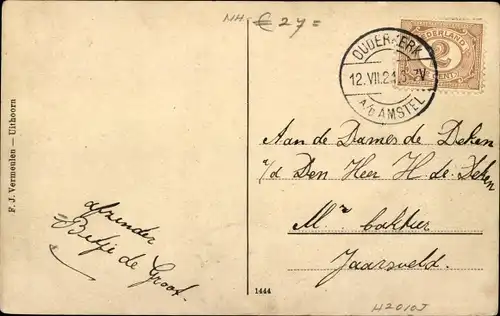 NH
€ 27=
OUDERKERK
12.VII.24. 5-7V
A/D AMSTEL
NEDERLAND
2
CENT
Aan de Dames de Deken
v/d Den Heer H. de Deken
Mr bakker
Jaarsveld
afzender
Betje de Groot.
F. J. Vermeulen — Uithoorn
1444
H2010J